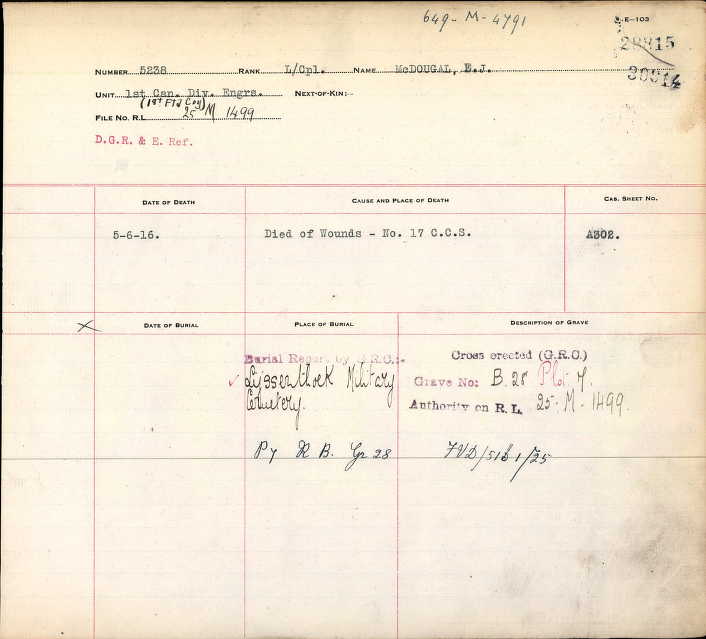 649-M-4791
E-103
28815
NUMBER 5238 RANK L/Cpl. NAME McDOUGAL, E.J.
UNIT 1st Can. Div. Engrs. NEXT-OF-KIN:-
(1st Fld Coy)
FILE No. R.L. 25 M 1499
D.G.R. & E. Ref.
DATE OF DEATH CAUSE AND PLACE OF DEATH CAS. SHEET NO.
5-6-16. Died of Wounds - No. 17 C.C.S. A302.
X DATE OF BURIAL PLACE OF BURIAL DESCRIPTION OF GRAVE
Burial Report by G.R.C:- Cross erected (G.R.C.)
Lijssenthoek Military Grave No: B. 28 Plot 7.
Cemetery. Authority on R. L. 25-M-1499.
P7 R B. Gr 28